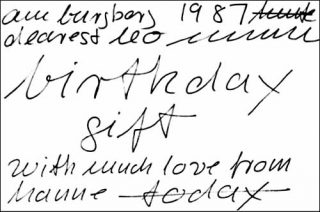 am burgberg 1987
dearest leo
birthday
gift
with much love from
hanne today